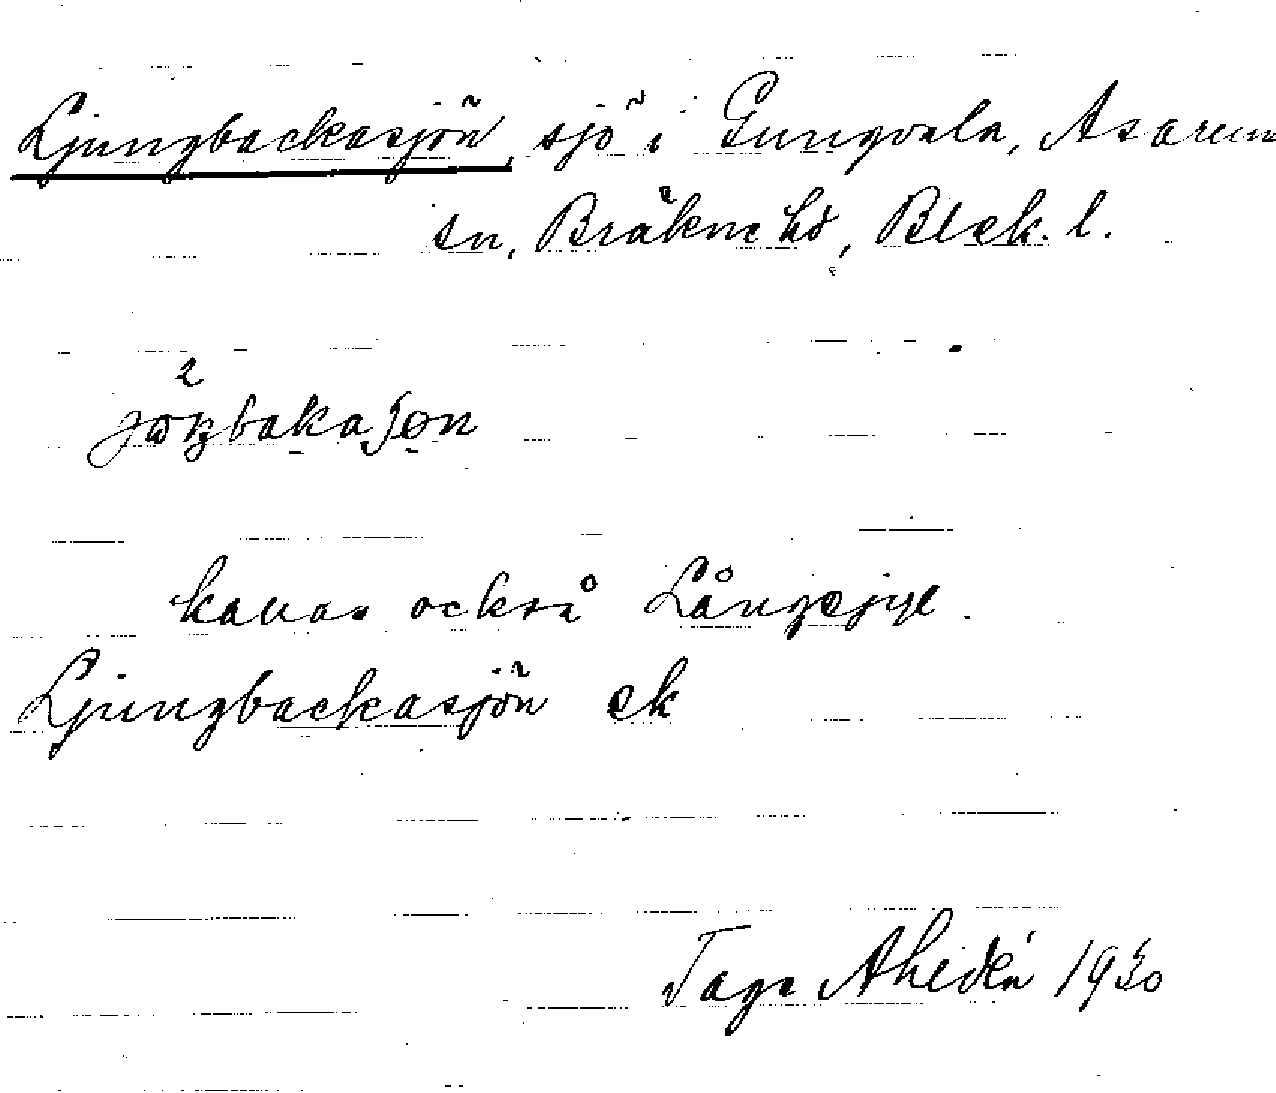 Ljungbackasjön, sjö i Gungvala, Asarum
sn, Bräkne hd, Blek. l.
kallas också Långasjye.
Ljungbackasjön ek
Tage Ahldén 1930